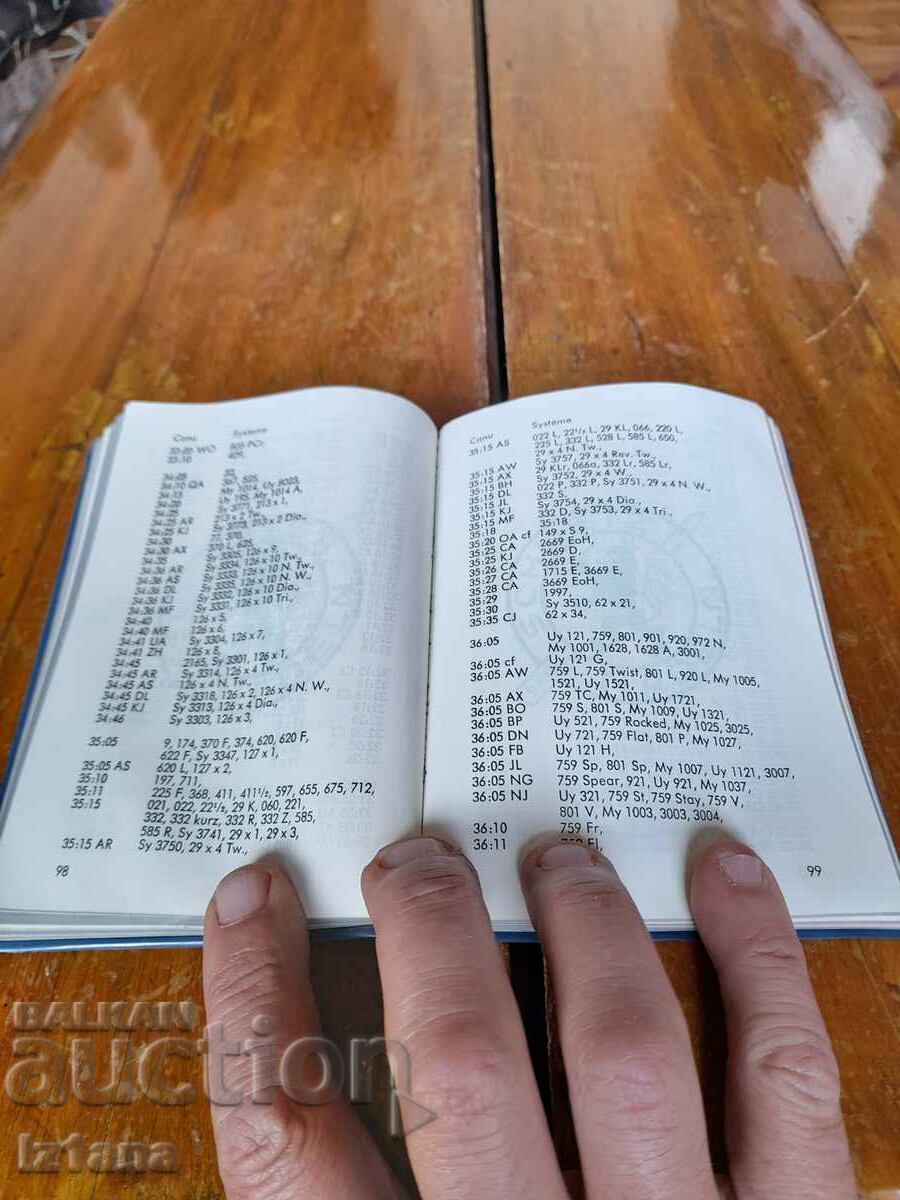 Canu Systeme
33:05 WO 805 PCr,
33:10 409,
34:05 32,
34:10 QA 367, 505,
34:15 My 1014, Uy 8023,
34:20 Uy 195, My 1014 A,
34:25 Sy 3771, 213 x 1,
34:25 AR 213 x 2 Tw.,
34:25 KJ Sy 3773, 213 x 2 Dia.,
34:30 77, 370,
34:30 AX 370 L, 625,
34:35 Sy 3305, 126 x 9,
34:36 AR Sy 3334, 126 x 10 Tw.,
34:36 AS Sy 3333, 126 x 10 N. Tw.,
34:36 DL Sy 3335, 126 x 10 N. W.,
34:36 KJ Sy 3332, 126 x 10 Dia.,
34:36 MF Sy 3331, 126 x 10 Tri.,
34:40 126 x 5,
34:40 MF 126 x 6,
34:41 UA Sy 3304, 126 x 7,
34:41 ZH 126 x 8,
34:45 2165, Sy 3301, 126 x 1,
34:45 AR Sy 3314, 126 x 4 Tw.,
34:45 AS 126 x 4 N. Tw.,
34:45 DL Sy 3318, 126 x 2, 126 x 4 N. W.,
34:45 KJ Sy 3313, 126 x 4 Dia.,
34:46 Sy 3303, 126 x 3,
35:05 9, 174, 370 F, 374, 620, 620 F,
622 F, Sy 3347, 127 x 1,
35:05 AS 620 L, 127 x 2,
35:10 197, 711,
35:11 225 F, 368, 411, 411½, 597, 655, 675, 712,
35:15 021, 022, 22½, 29 K, 060, 221,
332, 332 kurz, 332 R, 332 Z, 585,
585 R, Sy 3741, 29 x 1, 29 x 3,
35:15 AR Sy 3750, 29 x 4 Tw.,
98
Canu Systeme
35:15 AS 022 L, 22½ L, 29 KL, 066, 220 L,
225 L, 332 L, 528 L, 585 L, 650,
29 x 4 N. Tw.,
35:15 AW Sy 3757, 29 x 4 Rev. Tw.,
35:15 AX 29 KLr, 066a, 332 Lr, 585 Lr,
35:15 BH Sy 3752, 29 x 4 W.,
35:15 DL 022 P, 332 P, Sy 3751, 29 x 4 N. W.,
35:15 JL 332 S,
35:15 KJ Sy 3754, 29 x 4 Dia.,
35:15 MF 332 D, Sy 3753, 29 x 4 Tri.,
35:18 35:18
35:20 OA cf 149 x S 9,
35:25 CA 2669 EoH,
35:25 KJ 2669 D,
35:26 CA 2669 E,
35:27 CA 1715 E, 3669 E,
35:28 CA 3669 EoH,
35:29 1997,
35:30 Sy 3510, 62 x 21,
35:35 CJ 62 x 34,
36:05 Uy 121, 759, 801, 901, 920, 972 N,
My 1001, 1628, 1628 A, 3001,
36:05 cf Uy 121 G,
36:05 AW 759 L, 759 Twist, 801 L, 920 L, My 1005,
1521, Uy 1521,
36:05 AX 759 TC, My 1011, Uy 1721,
36:05 BO 759 S, 801 S, My 1009, Uy 1321,
36:05 BP Uy 521, 759 Rocked, My 1025, 3025,
36:05 DN Uy 721, 759 Flat, 801 P, My 1027,
36:05 FB Uy 121 H,
36:05 JL 759 Sp, 801 Sp, My 1007, Uy 1121, 3007,
36:05 NG 759 Spear, 921, Uy 921, My 1037,
36:05 NJ Uy 321, 759 St, 759 Stay, 759 V,
801 V, My 1003, 3003, 3004,
36:10 759 Fr,
36:11 759 Fl,
99
BALKAN
auction
iz1tana